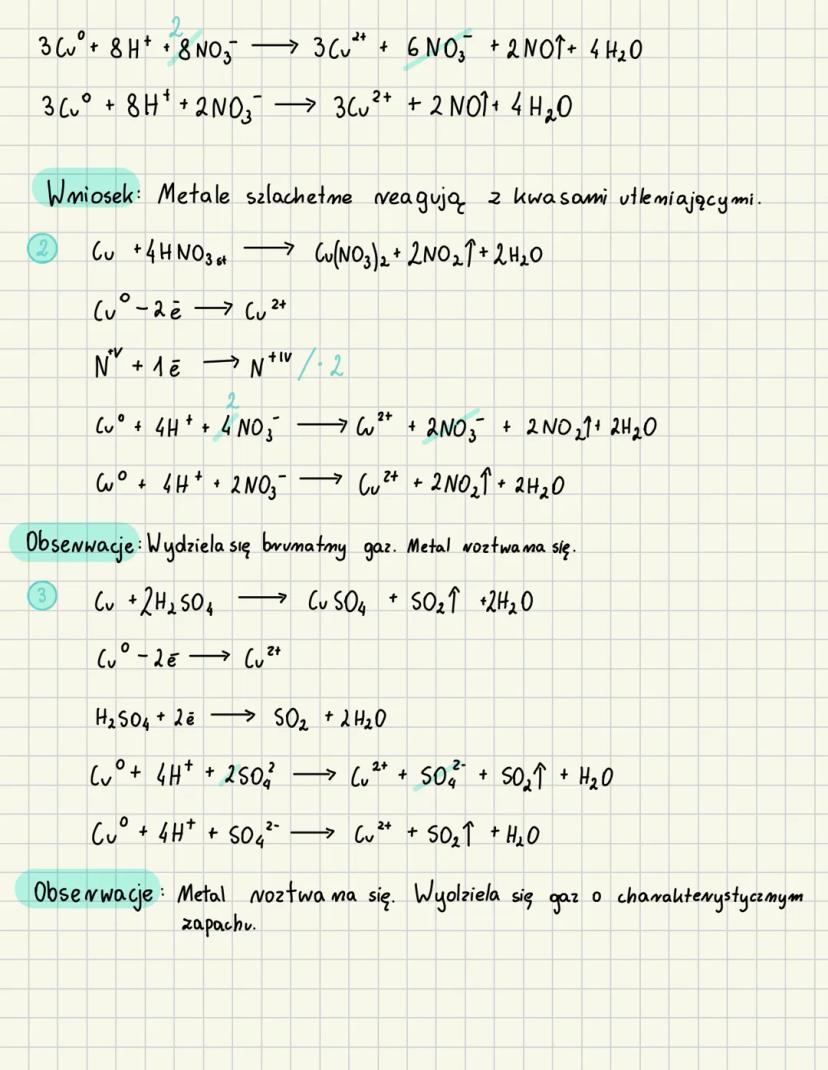 2
3Cu⁰ + 8H⁺ + 8NO₃⁻ ⟶ 3Cu²⁺ + 6NO₃⁻ + 2NO↑ + 4H₂O
3Cu⁰ + 8H⁺ + 2NO₃⁻ ⟶ 3Cu²⁺ + 2NO↑ + 4H₂O
Wniosek: Metale szlachetne reagują z kwasami utleniającymi.
2 Cu + 4HNO₃ st ⟶ Cu(NO₃)₂ + 2NO₂↑ + 2H₂O
Cu⁰ - 2ē ⟶ Cu²⁺
N⁺ⱽ + 1ē ⟶ N⁺ᴵⱽ /·2
2
Cu⁰ + 4H⁺ + 4NO₃⁻ ⟶ Cu²⁺ + 2NO₃⁻ + 2NO₂↑ + 2H₂O
Cu⁰ + 4H⁺ + 2NO₃⁻ ⟶ Cu²⁺ + 2NO₂↑ + 2H₂O
Obserwacje: Wydziela się brunatny gaz. Metal roztwarza się.
3 Cu + 2H₂SO₄ ⟶ CuSO₄ + SO₂↑ + 2H₂O
Cu⁰ - 2ē ⟶ Cu²⁺
H₂SO₄ + 2ē ⟶ SO₂ + 2H₂O
Cu⁰ + 4H⁺ + 2SO₄² ⟶ Cu²⁺ + SO₄²⁻ + SO₂↑ + H₂O
Cu⁰ + 4H⁺ + SO₄²⁻ ⟶ Cu²⁺ + SO₂↑ + H₂O
Obserwacje: Metal roztwarza się. Wydziela się gaz o charakterystycznym
zapachu.